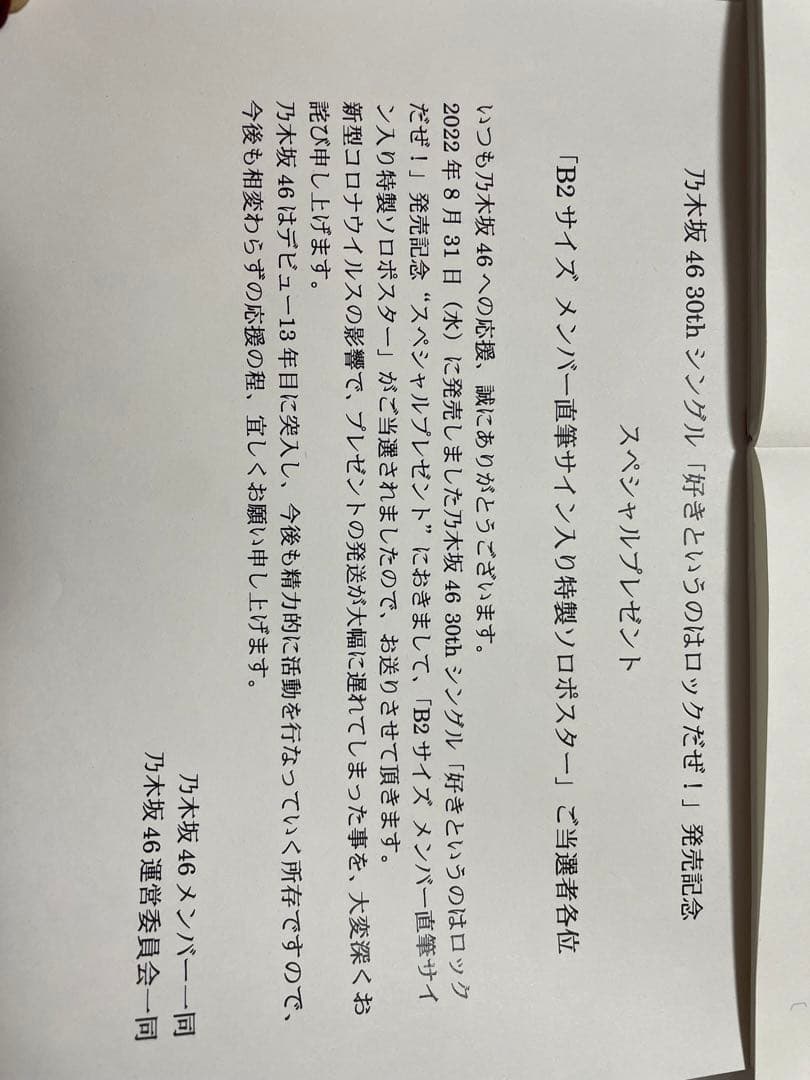 乃木坂 46 30th シングル「好きというのはロックだぜ！」発売記念
スペシャルプレゼント
「B2 サイズ メンバー直筆サイン入り特製ソロポスター」ご当選者各位
いつも乃木坂 46 への応援、誠にありがとうございます。
2022 年 8 月 31 日（水）に発売しました乃木坂 46 30th シングル「好きというのはロック
だぜ！」発売記念 “スペシャルプレゼント” におきまして、「B2 サイズ メンバー直筆サイ
ン入り特製ソロポスター」がご当選されましたので、お送りさせて頂きます。
新型コロナウイルスの影響で、プレゼントの発送が大幅に遅れてしまった事を、大変深くお
詫び申し上げます。
乃木坂 46 はデビュー13 年目に突入し、今後も精力的に活動を行なっていく所存ですので、
今後も相変わらずの応援の程、宜しくお願い申し上げます。
乃木坂 46 メンバー一同
乃木坂 46 運営委員会一同